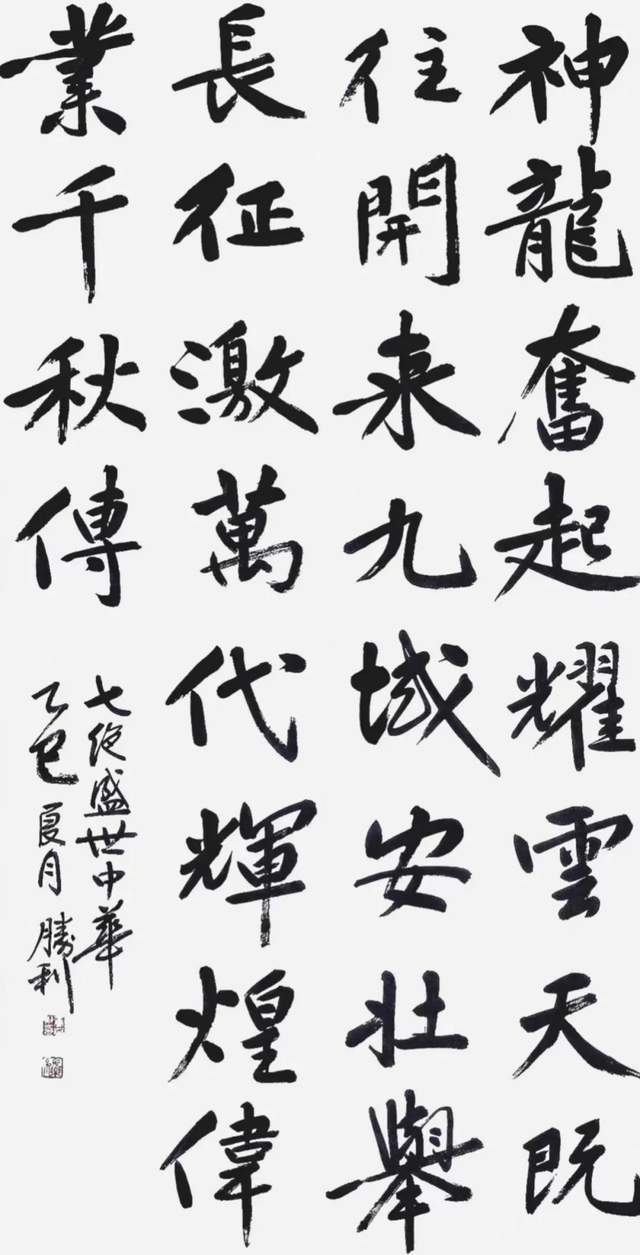 神龍奮起耀雲天既
往開来九域安壮舉
長征激萬代輝煌偉
業千秋傳
七绝盛世中華
乙巳夏月 勝利